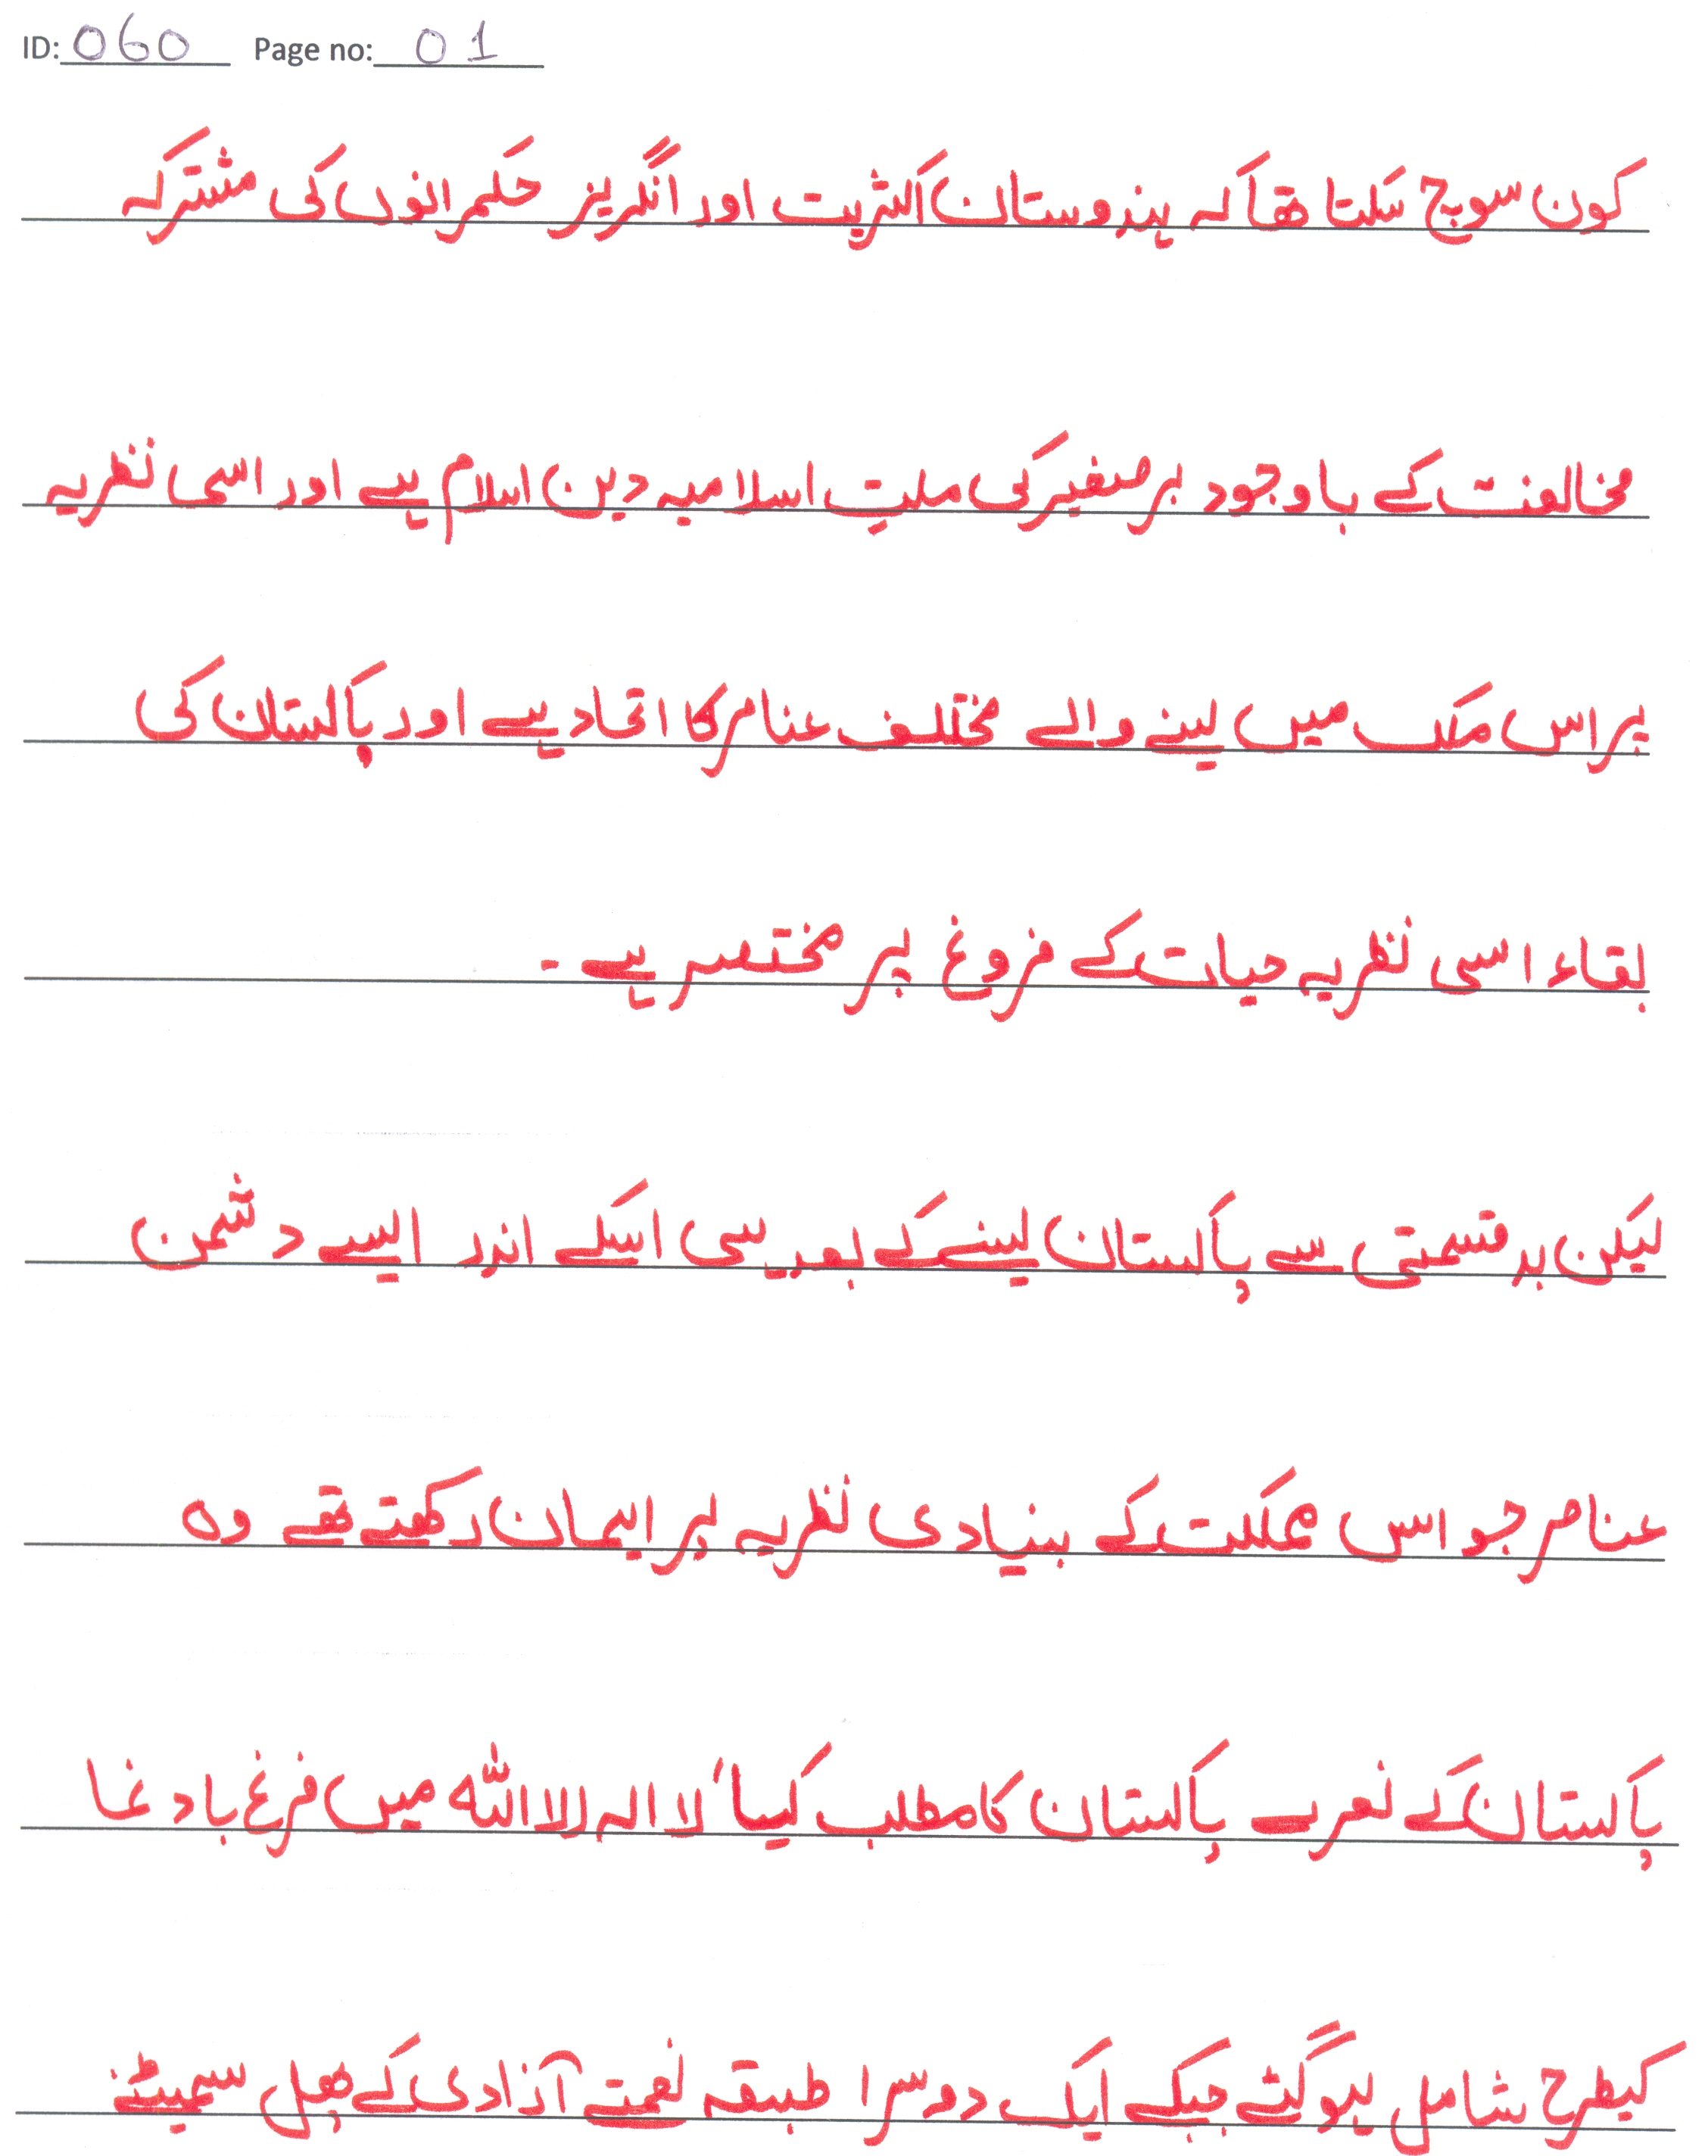 ID: 060 Page no: 01
کون سوچ سکتا تھا کہ ہندوستان اکثریت اور انگریز حکمرانوں کی مشترکہ
مخالفت کے باوجود برصغیر کی ملتِ اسلامیہ دین اسلام ہے اور اسی نظریہ
پر اس ملک میں بسنے والے مختلف عناصر کا اتحاد ہے اور پاکستان کی
بقاء اسی نظریہ حیات کے فروغ پر مختصر ہے ۔
لیکن بد قسمتی سے پاکستان بسنے کے بعد سی اسکے اندر ایسے دشمن
عناصر جو اس مملکت کے بنیادی نظریہ پر ایمان رکھتے تھے وہ
پاکستان کے نعرے پاکستان کا مطلب کیا' لا الہ الا اللہ میں فرغ باد غا
کیطرح شامل ہوگئے جبکے ایک دوسرا طبقہ نعمتِ آزادی کے پھل سمیٹنے